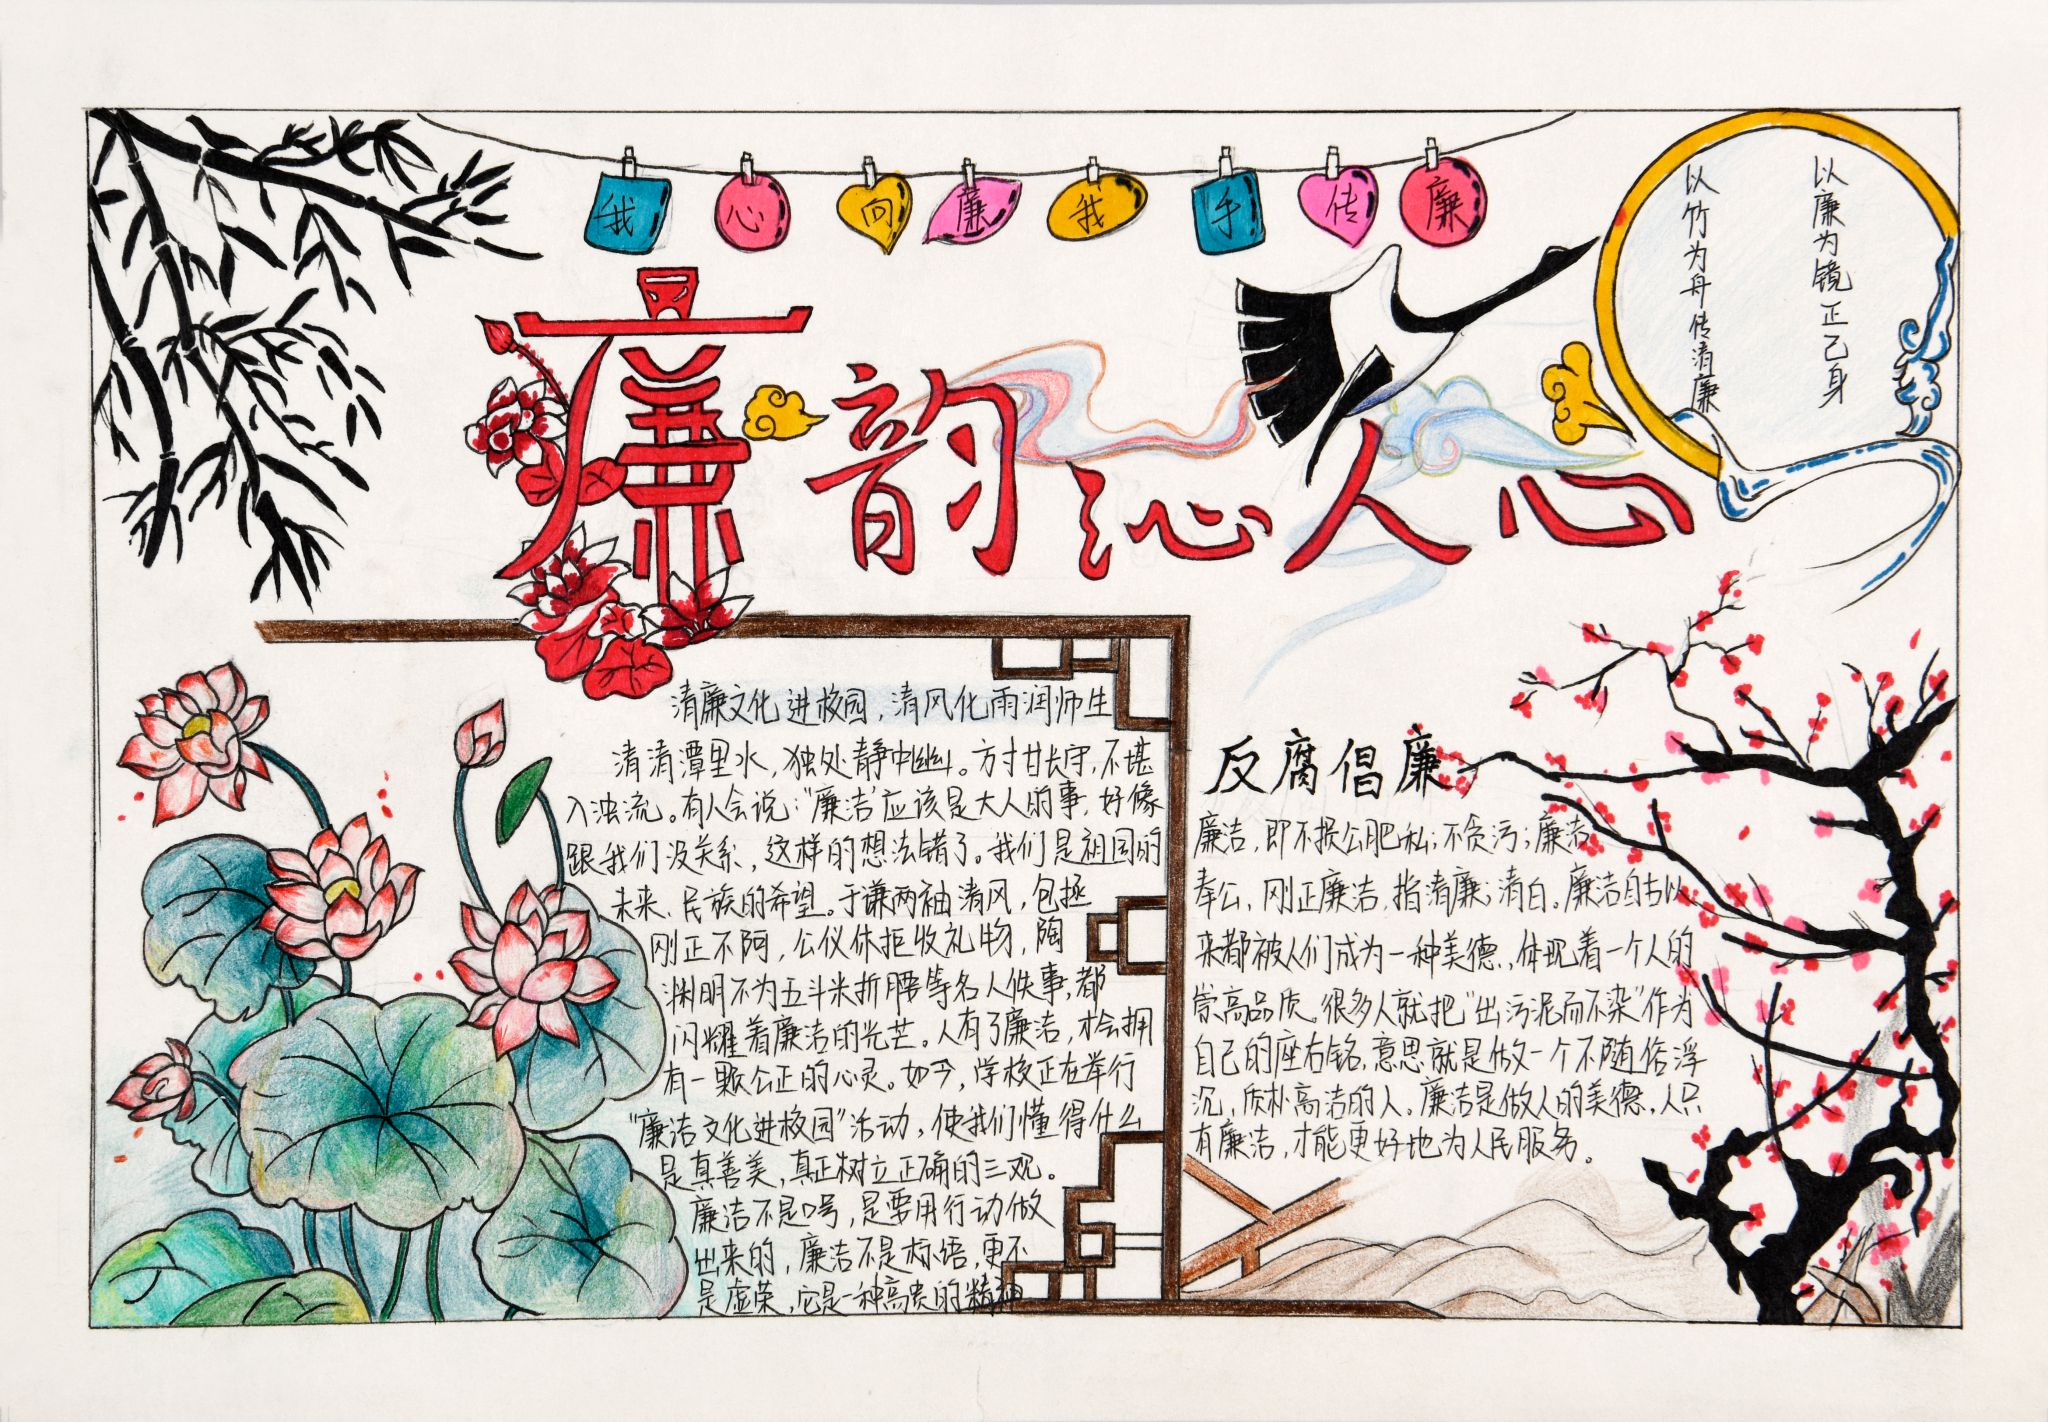 我心向廉我手传廉
廉韵沁人心
以廉为镜正己身
以竹为舟传清廉
清廉文化进校园，清风化雨润师生
清清潭里水，独处静中幽。方寸甘长守，不甚
入浊流。有人会说：“廉洁”应该是大人的事，好像
跟我们没关系，这样的想法错了。我们是祖国的
未来、民族的希望。于谦两袖清风，包拯
刚正不阿，公仪休拒收礼物，陶
渊明不为五斗米折腰等名人佚事，都
闪耀着廉洁的光芒。人有了廉洁，才会拥
有一颗公正的心灵。如今，学校正在举行
“廉洁文化进校园”活动，使我们懂得什么
是真善美，真正树立正确的三观。
廉洁不是口号，是要用行动做
出来的，廉洁不是标语，更不
是虚荣，它是一种高贵的精神
反腐倡廉
廉洁，即不损公肥私；不贪污；廉洁
奉公，刚正廉洁，指清廉；清白。廉洁自古以
来都被人们成为一种美德，体现着一个人的
崇高品质。很多人就把“出污泥而不染”作为
自己的座右铭，意思就是做一个不随俗浮
沉，质朴高洁的人。廉洁是做人的美德，人只
有廉洁，才能更好地为人民服务。